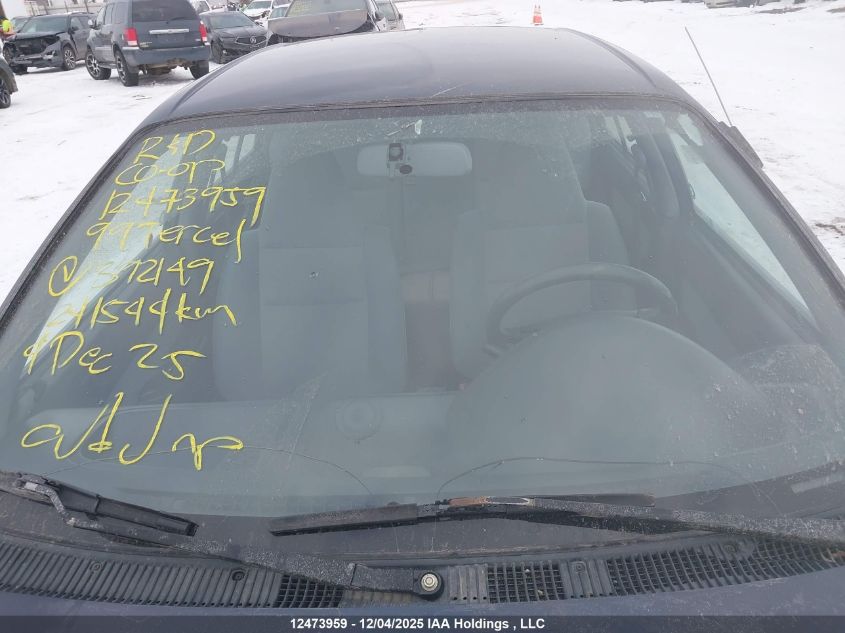 R&D
CO-OP
12473959
99 Tercel
V 372149
241544 km
9 Dec 25
12473959 - 12/04/2025 IAA Holdings, LLC